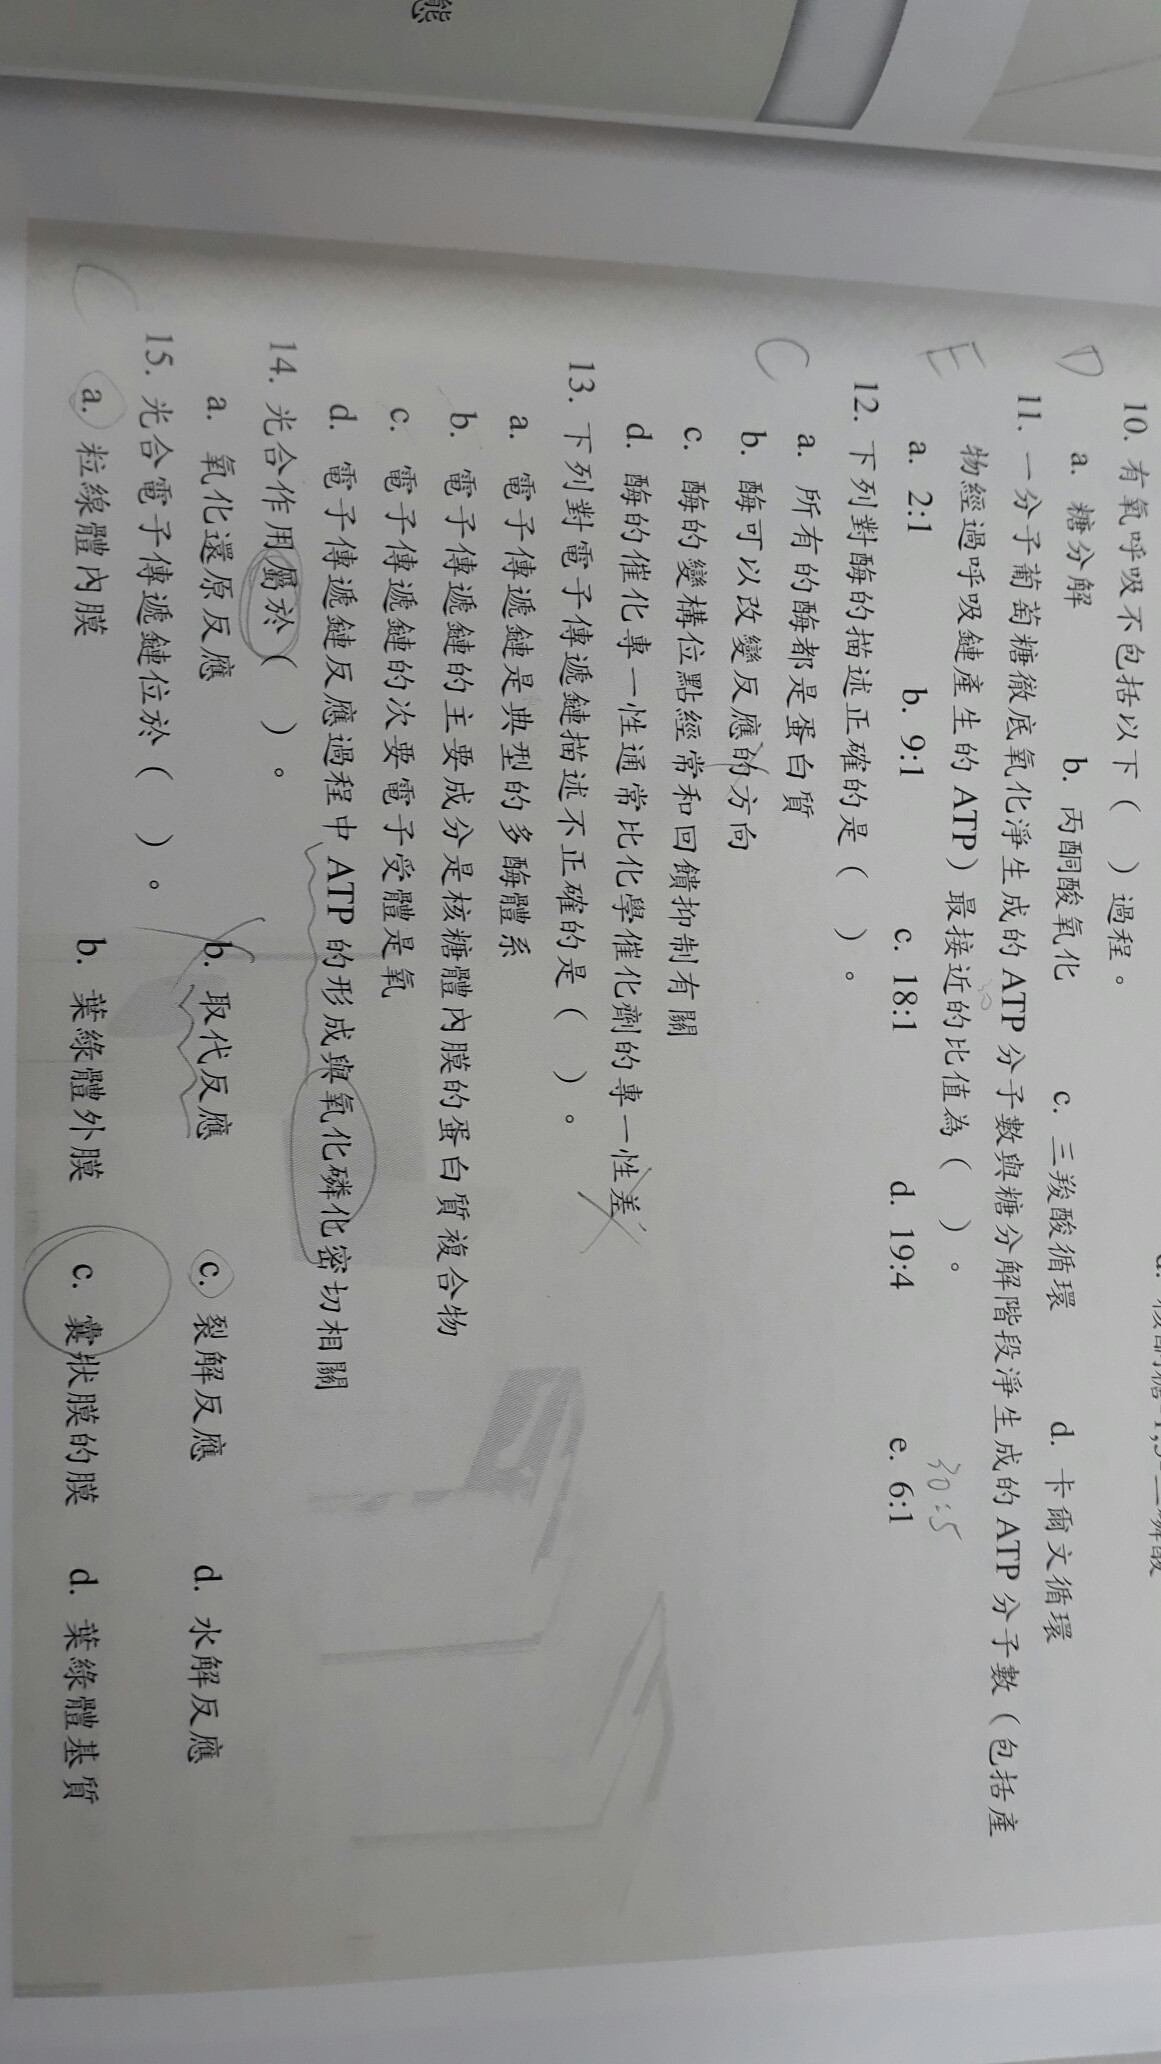 態
10. 有氧呼吸不包括以下（ ）過程。
D
a. 糖分解 b. 丙酮酸氧化 c. 三羧酸循環 d. 卡爾文循環
11. 一分子葡萄糖徹底氧化淨生成的 ATP 分子數與糖分解階段淨生成的 ATP 分子數（包括產
物經過呼吸鏈產生的 ATP）最接近的比值為（ ）。
30:5
E
a. 2:1 b. 9:1 c. 18:1 d. 19:4 e. 6:1
12. 下列對酶的描述正確的是（ ）。
a. 所有的酶都是蛋白質
C
b. 酶可以改變反應的方向
c. 酶的變構位點經常和回饋抑制有關
d. 酶的催化專一性通常比化學催化劑的專一性差
13. 下列對電子傳遞鏈描述不正確的是（ ）。
a. 電子傳遞鏈是典型的多酶體系
b. 電子傳遞鏈的主要成分是核糖體內膜的蛋白質複合物
c. 電子傳遞鏈的次要電子受體是氧
d. 電子傳遞鏈反應過程中 ATP 的形成與氧化磷化密切相關
14. 光合作用屬於（ ）。
a. 氧化還原反應 b. 取代反應 c. 裂解反應 d. 水解反應
15. 光合電子傳遞鏈位於（ ）。
C
a. 粒線體內膜 b. 葉綠體外膜 c. 囊狀膜的膜 d. 葉綠體基質